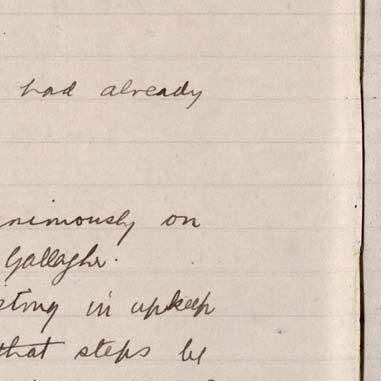 had already
nimously on
Gallagher.
in upkeep
that steps be